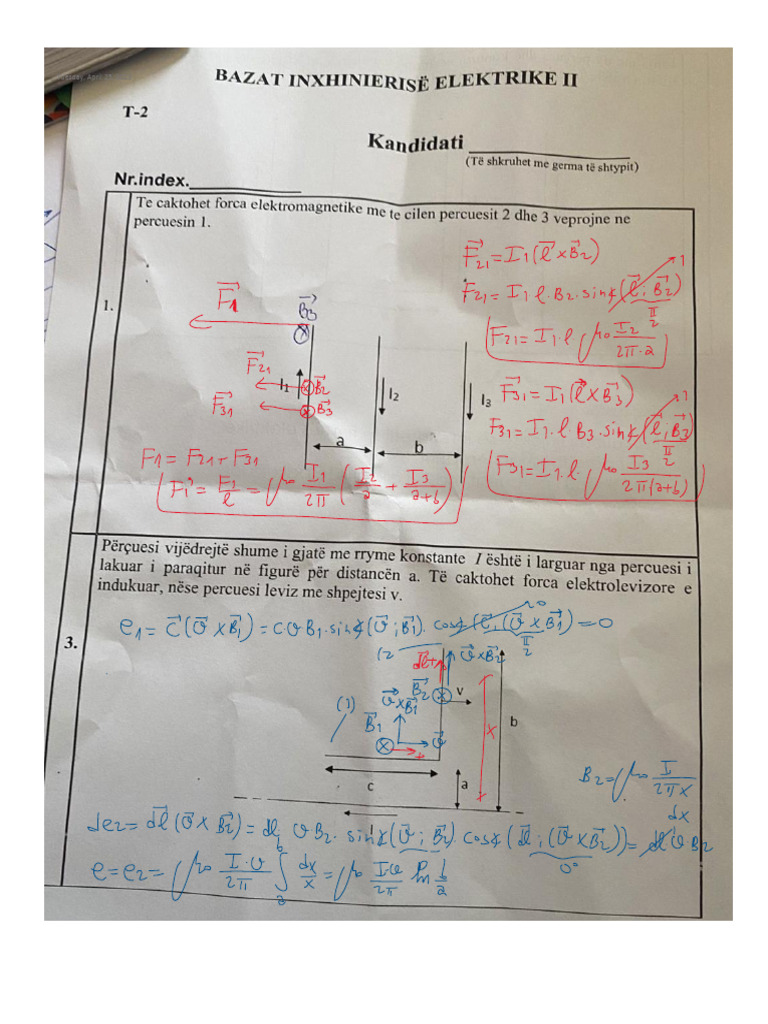 BAZAT INXHINIERISË ELEKTRIKE II
T-2
Kandidati
(Të shkruhet me germa të shtypit)
Nr.index.
Te caktohet forca elektromagnetike me te cilen percuesit 2 dhe 3 veprojne ne
percuesin 1.
1.
F⃗21 = I1(l⃗ x B⃗2)
F21 = I1 l · B2 · sin∢(l⃗; B⃗2) 1
π/2
F21 = I1 · l μ0 I2/(2π·a)
F⃗31 = I1(l⃗ x B⃗3)
F31 = I1 · l · B3 · sin∢(l⃗; B⃗3) 1
π/2
F31 = I1 · l · μ0 I3/(2π(a+b))
F⃗1
B⃗3
F⃗21
I1
B⃗2
F⃗31
B⃗3
I2
I3
a
b
F1 = F21 + F31
F1' = F1/l = μ0 I1/2π (I2/a + I3/(a+b))
Përçuesi vijëdrejtë shume i gjatë me rryme konstante I është i larguar nga percuesi i
lakuar i paraqitur në figurë për distancën a. Të caktohet forca elektrolevizore e
indukuar, nëse percuesi leviz me shpejtesi v.
3.
e1 = c⃗(v⃗ x B⃗1) = c v B1 · sin∢(v⃗; B⃗1) · cos∢(l⃗, (v⃗ x B⃗1)) = 0
π/2
(2
dl⃗
v⃗ x B⃗2
B⃗2
v
(1)
v⃗ x B⃗1
B⃗1
v⃗
x
b
c
a
I
B2 = μ0 I/(2πx)
dx
de2 = dl⃗(v⃗ x B⃗2) = dl v B2 · sin∢(v⃗; B⃗2) cos∢(dl⃗; (v⃗ x B⃗2)) = dl v B2
0°
e = e2 = μ0 I·v/2π ∫ₐᵇ dx/x = μ0 I·v/2π ln b/a